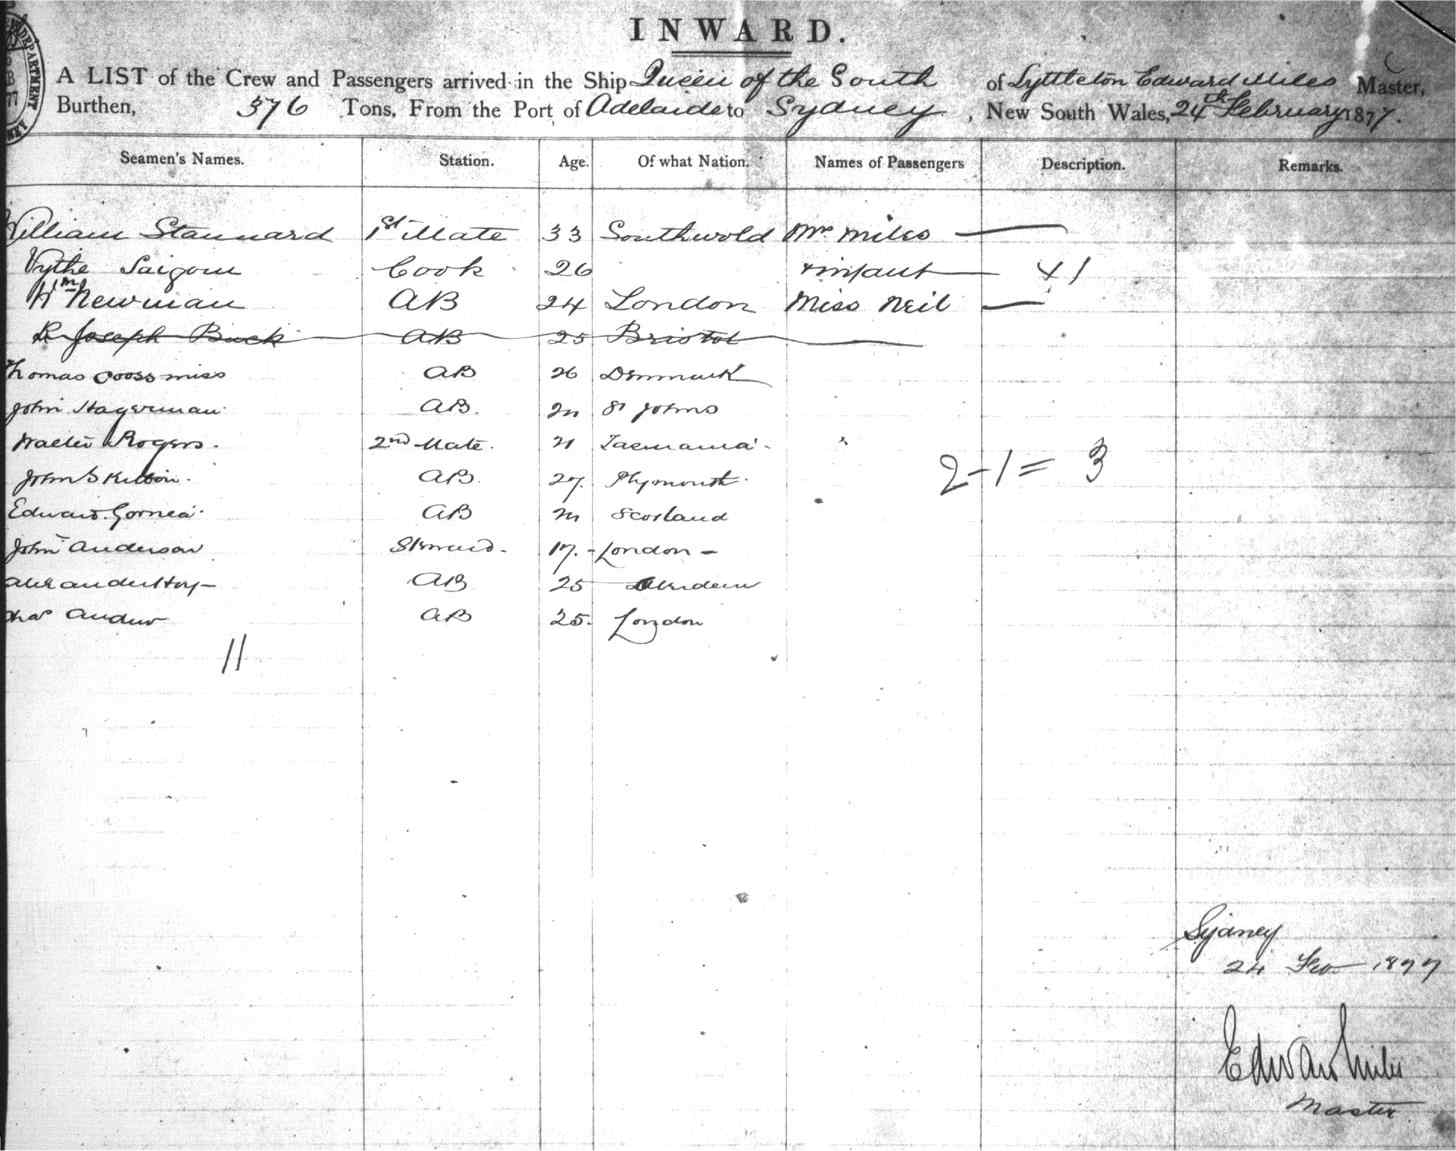 INWARD.
A LIST of the Crew and Passengers arrived in the Ship Queen of the South of Lyttleton Edward Miles Master,
Burthen, 376 Tons, From the Port of Adelaide to Sydney, New South Wales, 24th February 1877.
Seamen's Names. Station. Age. Of what Nation. Names of Passengers Description. Remarks.
William Stannard 1st Mate 33 Southwold Mrs Miles
Cook 26 + infant 41
Wm Newman AB 24 London Miss Neil
Joseph Buck AB 25 Bristol
Thomas AB 26 Denmark
John Hagerman AB. St Johns
Walter Rogers. 2nd Mate. 21 Tasmania.
John Skitton. AB. 27. Plymouth.
Edward AB Scotland
John Anderson 17. - London -
Alexander Hoy - AB 25 Aberdeen
Chas Andew AB 25. London
2-1 = 3
11
Sydney
24 Feb 1877
Edward Miles
Master